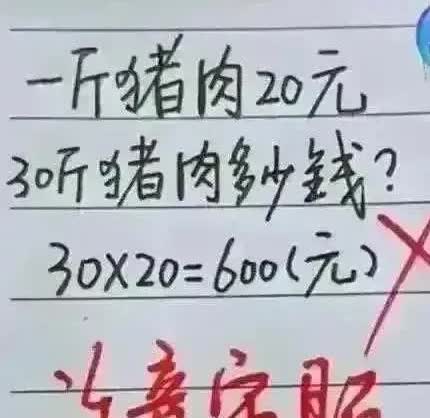 一斤猪肉20元
30斤猪肉多少钱?
30×20=600(元)
注意审题